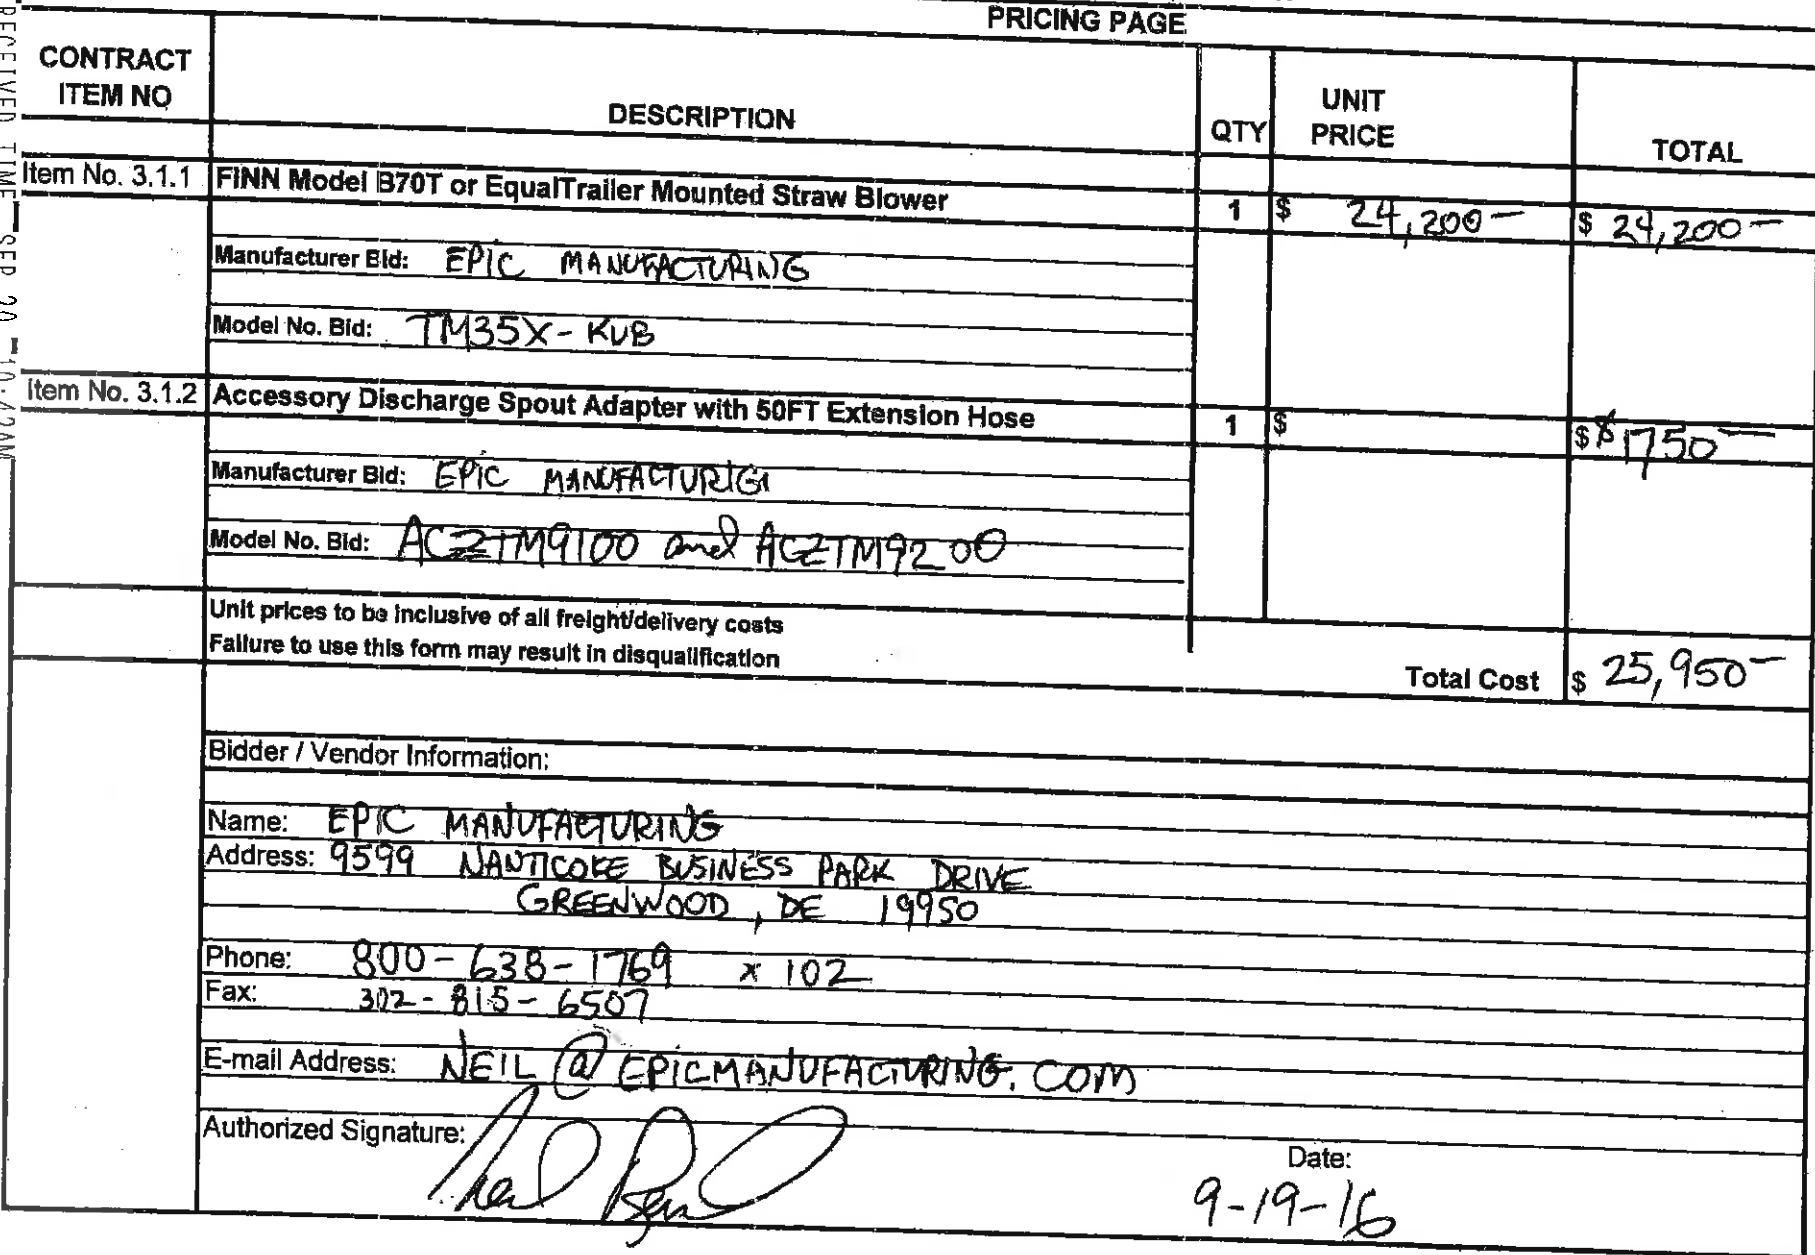 PRICING PAGE
CONTRACT ITEM NO DESCRIPTION QTY UNIT PRICE TOTAL
Item No. 3.1.1 FINN Model B70T or EqualTrailer Mounted Straw Blower 1 $ 24,200— $ 24,200—
Manufacturer Bid: EPIC MANUFACTURING
Model No. Bid: TM35X-KUB
Item No. 3.1.2 Accessory Discharge Spout Adapter with 50FT Extension Hose 1 $ $ $1750—
Manufacturer Bid: EPIC MANUFACTURIG
Model No. Bid: ACZTM9100 and ACZTM9200
Unit prices to be inclusive of all freight/delivery costs
Failure to use this form may result in disqualification
Total Cost $ 25,950—
Bidder / Vendor Information:
Name: EPIC MANUFACTURING
Address: 9599 NANTICOKE BUSINESS PARK DRIVE
GREENWOOD, DE 19950
Phone: 800-638-1769 x 102
Fax: 302-815-6507
E-mail Address: NEIL@EPICMANUFACTURING.COM
Authorized Signature:
Date:
9-19-16
RECEIVED TIME SEP. 20. 10:42AM